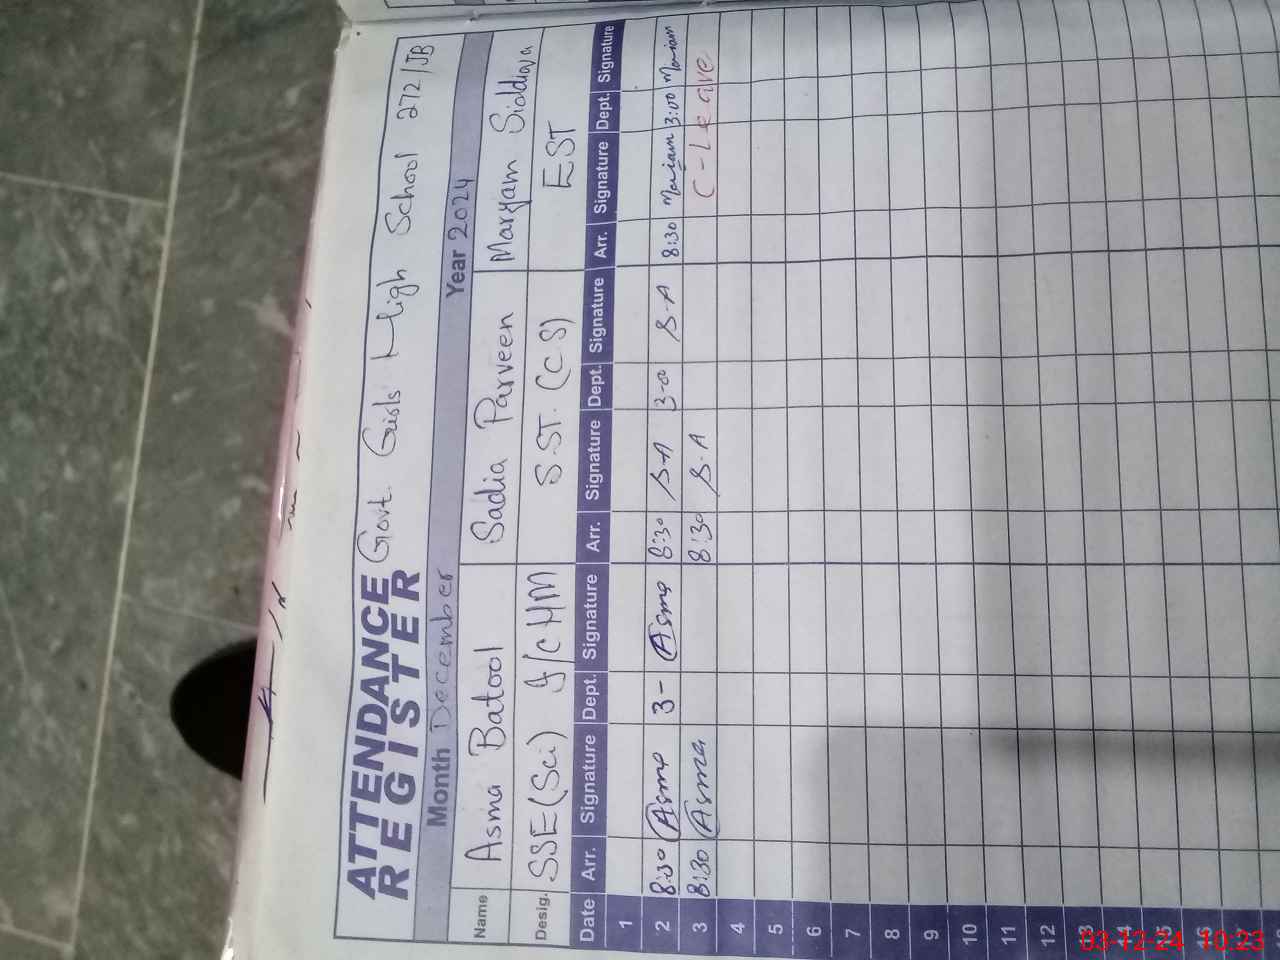 ATTENDANCE REGISTER Govt. Girls' High School 272/JB
Month December Year 2024
Name Asma Batool Sadia Parveen Maryam Siddiqa
Desig. SSE (Sci) I/C HM S.ST. (CS) EST
Date Arr. Signature Dept. Signature Arr. Signature Dept. Signature Arr. Signature Dept. Signature
1
2 8:30 Asma 3- Asma 8:30 S.A 3-0 S.A 8:30 Mariam 3:00 Mariam
3 8:30 Asma 8:30 S.A C-Leave
4
5
6
7
8
9
10
11
12
13
14
15
16
03-12-24 10:23